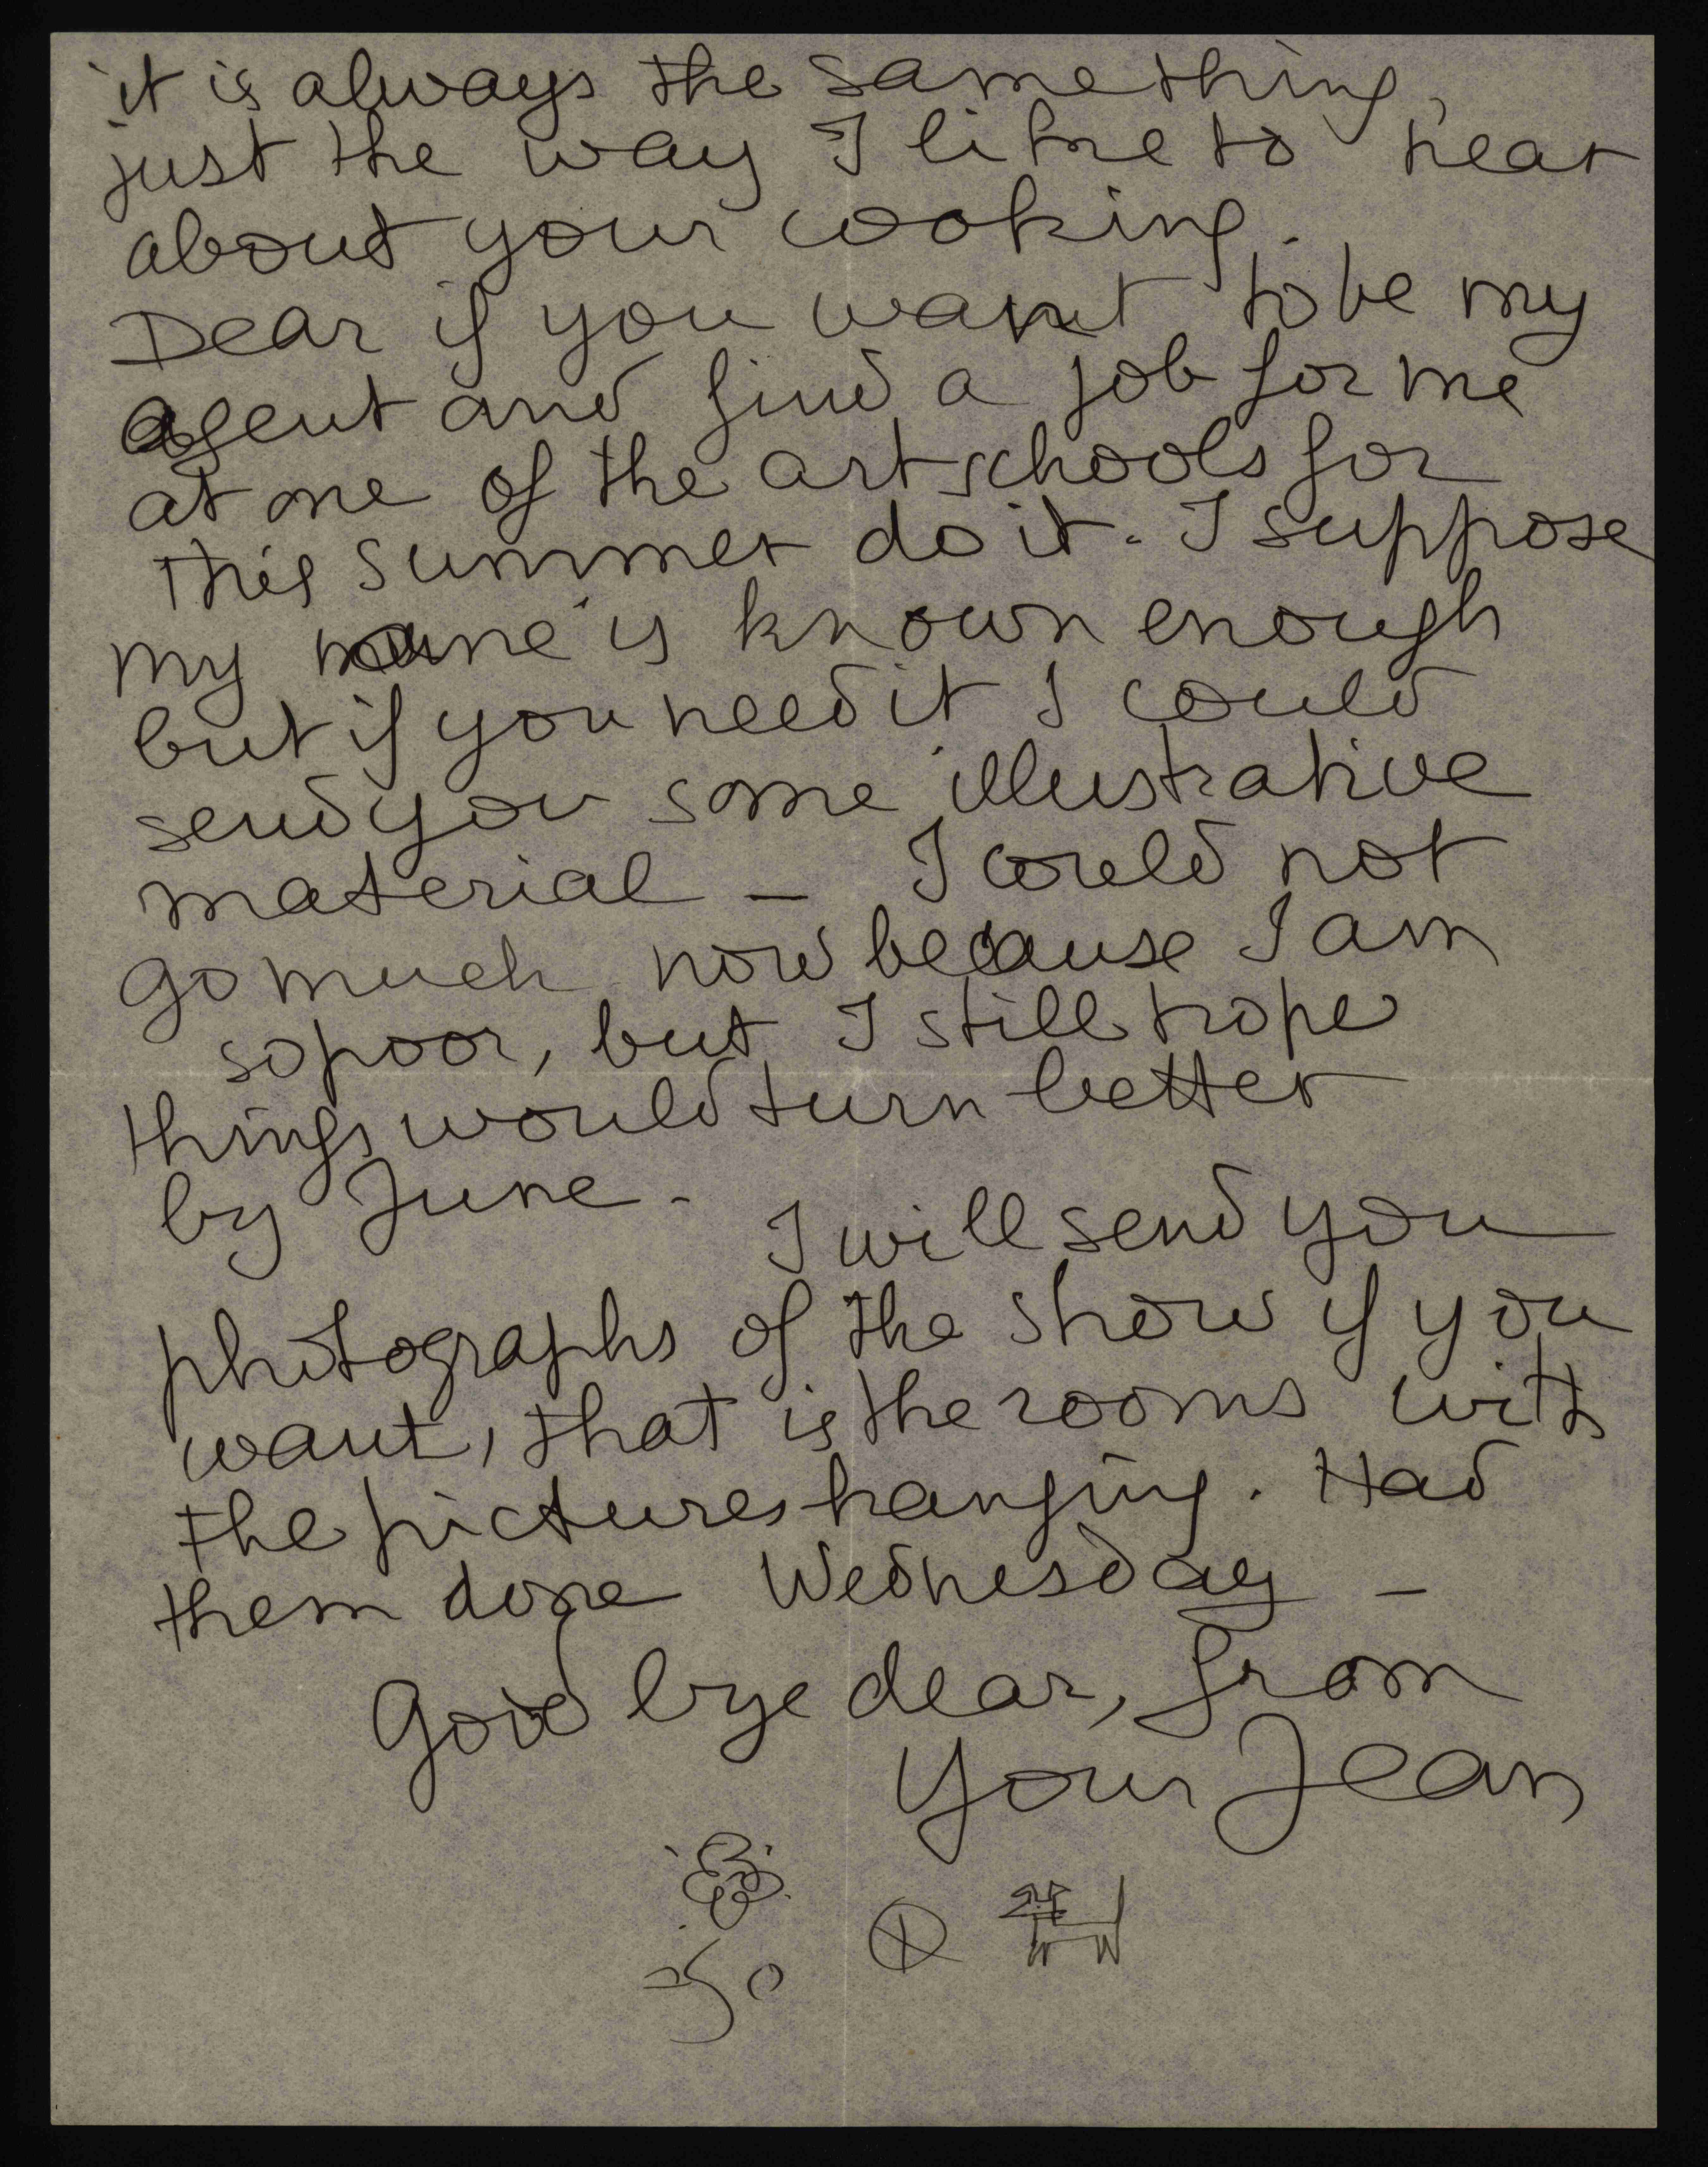 it is always the same thing,
just the way I like to hear
about your cooking.
Dear if you want to be my
agent and find a job for me
at one of the art schools for
this summer do it. I suppose
my name is known enough
but if you need it I could
send you some illustrative
material – I could not
go much now because I am
so poor, but I still hope
things would turn better
by June. I will send you
photographs of the show if you
want, that is the rooms with
the pictures hanging. Had
them done Wednesday –
Good bye dear, from
your Jean